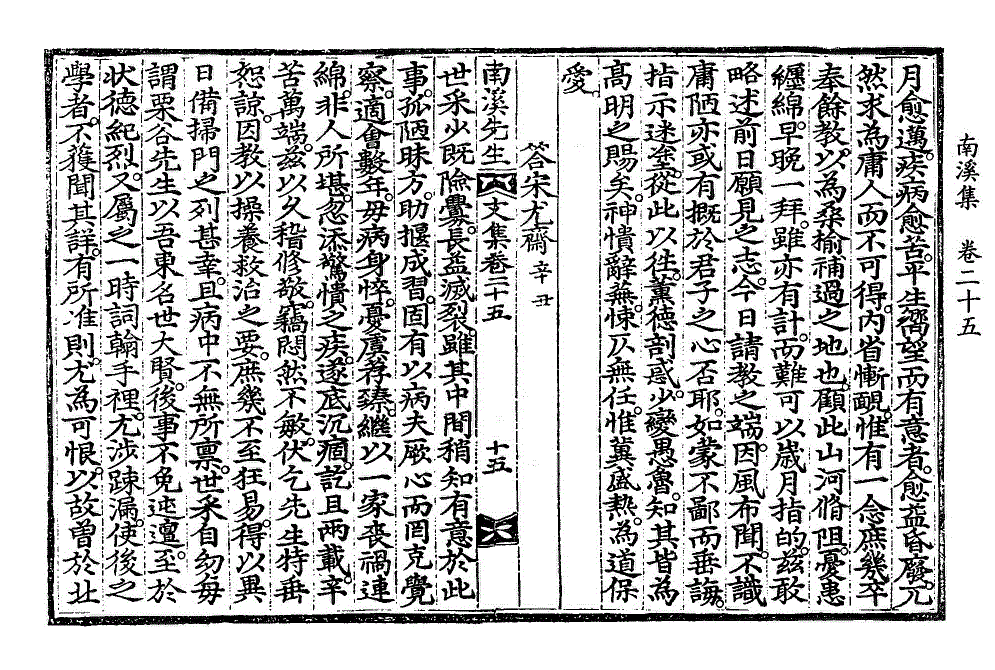 南溪集　卷二十五
月愈邁。疾病愈苦。平生嚮望而有意者。愈益昏廢。兀
然求為庸人而不可得。內省慚靦。惟有一念庶幾卒
奉餘教。以為桑榆補過之地也。顧此山河脩阻。憂患
纏綿。早晚一拜。雖亦有計。而難可以歲月指的。玆敢
略述前日願見之志。今日請敎之端。因風布聞。不識
庸陋亦或有概於君子之心否耶。如蒙不鄙而垂誨。
指示迷塗。從此以往。薰德剖惑。少變愚魯。知其皆為
高明之賜矣。神憒辭蕪。悚仄無任。惟冀盛熱。為道保
愛。
答宋尤齋 辛丑
南溪先生文集卷二十五　十五
世采少旣險釁。長益滅裂。雖其中間稍知有意於此
事。孤陋昧方。助揠成習。固有以病夫厥心而罔克覺
察。適會數年。母病身悴。憂虞荐臻。繼以一家喪禍連
綿。非人所堪。忽添驚憒之疾。遂底沉痼。訖且兩載。辛
苦萬端。玆以久稽修敬。竊悶然不敏。伏乞先生特垂
恕諒。因敎以操養救治之要。庶幾不至狂易。得以異
日備掃門之列甚幸。且病中不無所禀。世采自幼每
謂栗谷先生以吾東名世大賢。後事不免迍邅。至於
狀德紀烈。又屬之一時詞翰手裡。尤涉疎漏。使後之
學者。不獲聞其詳。有所准則。尤為可恨。以故曾於北